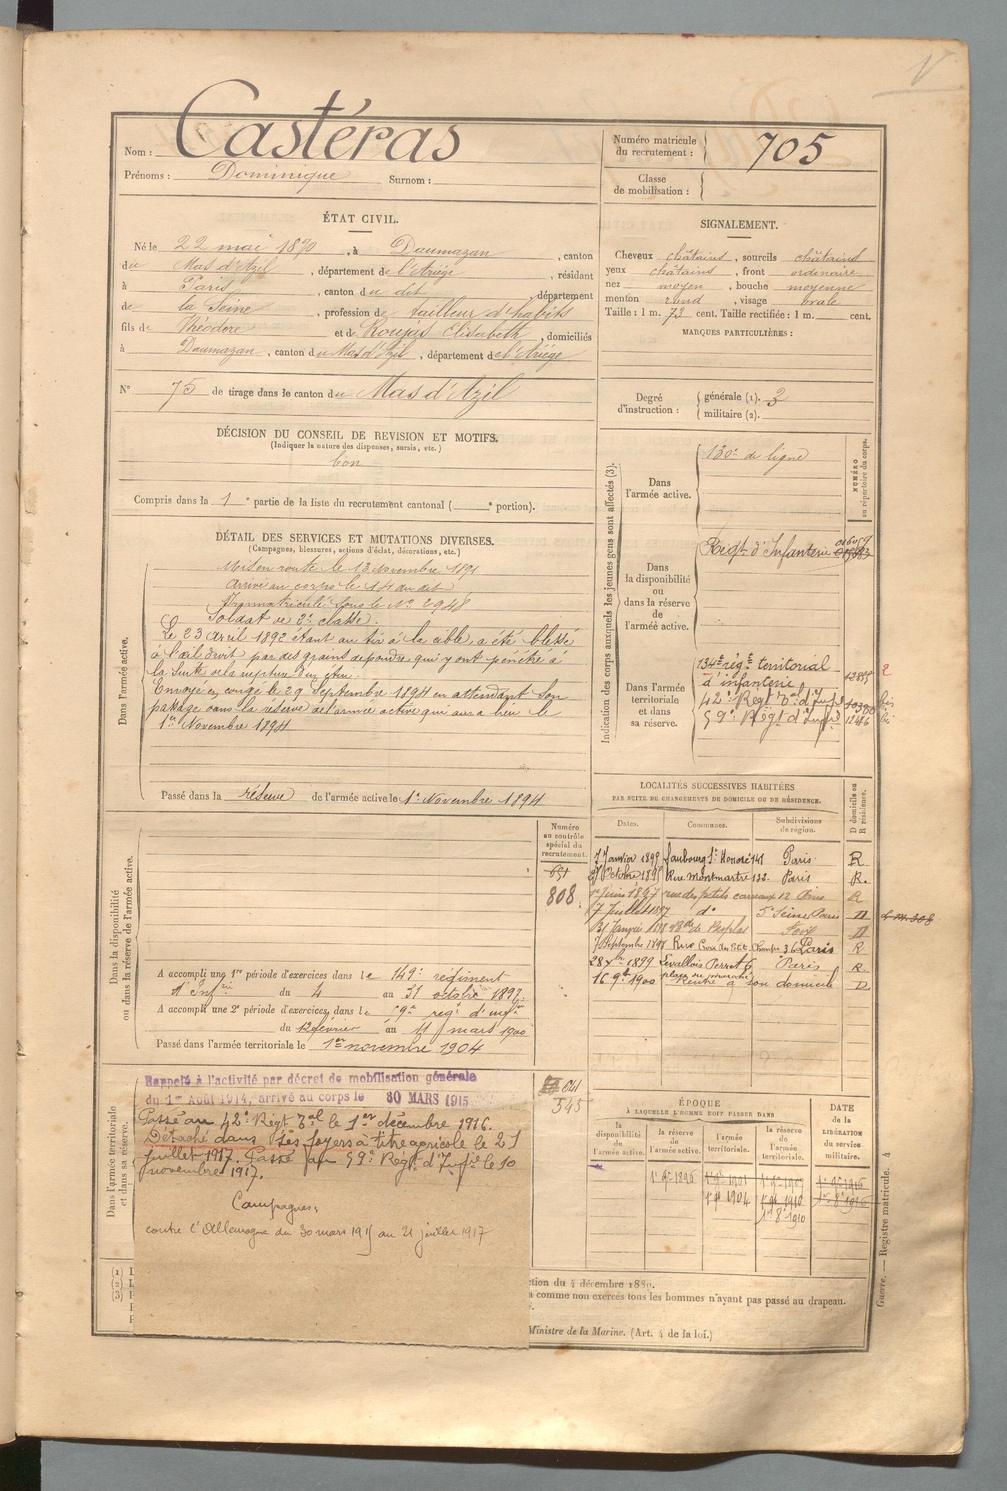 Nom : Castéras
Prénoms : Dominique Surnom :
Numéro matricule du recrutement : 705
Classe de mobilisation :
ÉTAT CIVIL.
Né le 22 mai 1870, à Daumazan, canton
du Mas d'Azil, département de l'Ariège, résidant
à Paris, canton du dit, département
de la Seine, profession de tailleur d'habits
fils de Théodore et de Roujas Elisabeth, domiciliés
à Daumazan, canton du Mas d'Azil, département de l'Ariège
N° 75 de tirage dans le canton du Mas d'Azil
SIGNALEMENT.
Cheveux châtains, sourcils châtains
yeux châtains, front ordinaire
nez moyen, bouche moyenne
menton rond, visage ovale
Taille : 1 m. 73 cent. Taille rectifiée : 1 m. cent.
MARQUES PARTICULIÈRES :
Degré d'instruction : générale (1). 3
militaire (2).
DÉCISION DU CONSEIL DE REVISION ET MOTIFS.
(Indiquer la nature des dispenses, sursis, etc.)
bon
Compris dans la 1e partie de la liste du recrutement cantonal ( e portion).
DÉTAIL DES SERVICES ET MUTATIONS DIVERSES.
(Campagnes, blessures, actions d'éclat, décorations, etc.)
Dans l'armée active.
Mis en route le 13 Novembre 1891
Arrivé au corps le 14 du dit
Immatriculé sous le N° 2948
Soldat de 2e classe.
Le 23 avril 1892 étant au tir à la cible, a été blessé
à l'œil droit par des grains de poudre qui y ont pénétré à
la suite de la rupture d'un étui.
Envoyé en congé le 29 Septembre 1894 en attendant son
passage dans la réserve de l'armée active qui aura lieu le
1er Novembre 1894
Passé dans la réserve de l'armée active le 1er Novembre 1894
Indication des corps auxquels les jeunes gens sont affectés (3).
NUMÉRO au répertoire du corps.
Dans l'armée active.
130e de ligne
Dans la disponibilité ou dans la réserve de l'armée active.
Régt d'Infanterie
Dans l'armée territoriale et dans sa réserve.
134e régt territorial
d'infanterie
42e Régt Tal d'Infie
59e Régt d'Infie 12486
LOCALITÉS SUCCESSIVES HABITÉES
PAR SUITE DE CHANGEMENTS DE DOMICILE OU DE RÉSIDENCE.
Dates. Communes. Subdivisions de région. D domicile ou R résidence.
7 Janvier 1895 faubourg St Honoré 141 Paris R
Octobre 1895 Rue Montmartre 132 Paris R.
1er Juin 1897 rue des petits carreaux 12 Paris R
7 Juillet 1897 do 5e Seine Paris D
31 Janvier Foix D
7 Septembre Rue Croix des Petits Champs 36 Paris R
28 xbre 1899 Levallois Perret 6 Paris R
16 9bre 1900 Rentré à son domicile D
Dans la disponibilité ou dans la réserve de l'armée active.
Numéro au contrôle spécial du recrutement.
808
A accompli une 1re période d'exercices dans le 149e régiment
d'Infrie du 4 au 31 octobre
A accompli une 2e période d'exercices dans le 59e régt d'infie
du 12 février au 11 mars 1900
Passé dans l'armée territoriale le 1er novembre 1904
Dans l'armée territoriale et dans sa réserve.
545
Rappelé à l'activité par décret de mobilisation générale
du 1er Août 1914, arrivé au corps le 30 MARS 1915
Passé au 42e Régt Tal le 1er décembre 1916.
Détaché dans ses foyers à titre agricole le 21
juillet 1917. Passé au 59e Régt d'Infie le 10
novembre 1917.
Campagnes :
contre l'Allemagne du 30 mars 1915 au 21 juillet 1917
ÉPOQUE
À LAQUELLE L'HOMME DOIT PASSER DANS
la disponibilité de l'armée active.
la réserve de l'armée active.
l'armée territoriale.
la réserve de l'armée territoriale.
DATE de la LIBÉRATION du service militaire.
1er 9e 1904
1er 8e 1910
(1)
(2)
(3)
ction du 4 décembre 1889.
a comme non exercés tous les hommes n'ayant pas passé au drapeau.
Ministre de la Marine. (Art. 4 de la loi.)
Guerre. — Registre matricule. 4